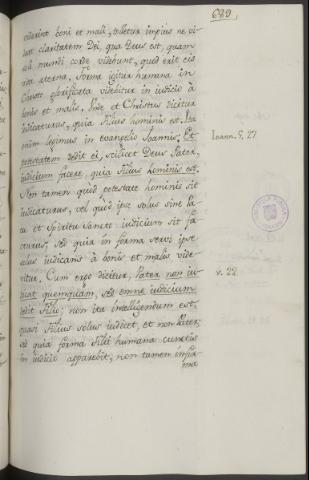 689
viderint boni et mali, tolletur impius ne vi-
deat claritatem Dei, qua Deus est, quam
soli mundi corde videbunt, quod erit eis
vita aeterna. Forma igitur humana in
Christo glorificata videbitur in iudicio à
bonis et malis. Inde et Christus dicitur
iudicaturus, quia Filius hominis est. Ita
enim legimus in evangelio Ioannis: Et
potestatem dedit ei, scilicet Deus Pater,
iudicium facere, quia Filius hominis est.
Ioann. 5, 27
Non tamen quod potestate hominis sit
iudicaturus, vel quod ipse solus sine Pa-
tre et Spiritu Sancto iudicium sit fa-
cturus; sed quia in forma servi ipse
solus iudicans à bonis et malis vide-
bitur. Cum ergo dicitur, Pater non iu-
dicat quemquam, sed omne iudicium
v. 22
dedit Filio; non ita intelligendum est,
quasi Filius solus iudicet, et non Pater;
sed quia forma Filii humana cunctis
in iudicio apparebit; non tamen infir-
ma